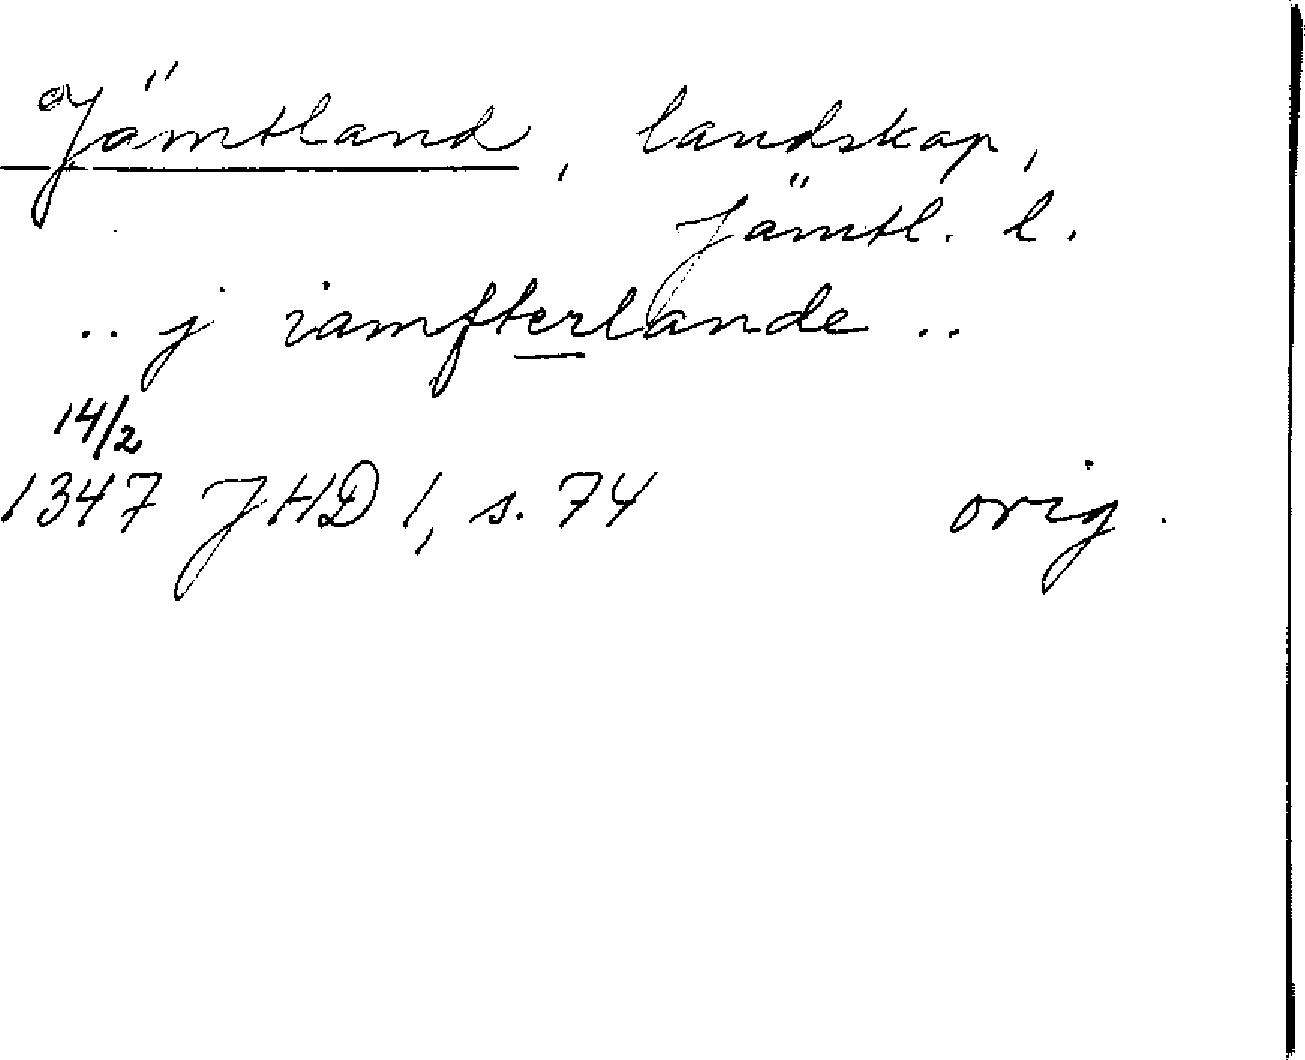 Jämtland, landskap,
Jämtl. l.
.. j iamfterlande ..
14/2
1347 JHD 1, s. 74 orig.